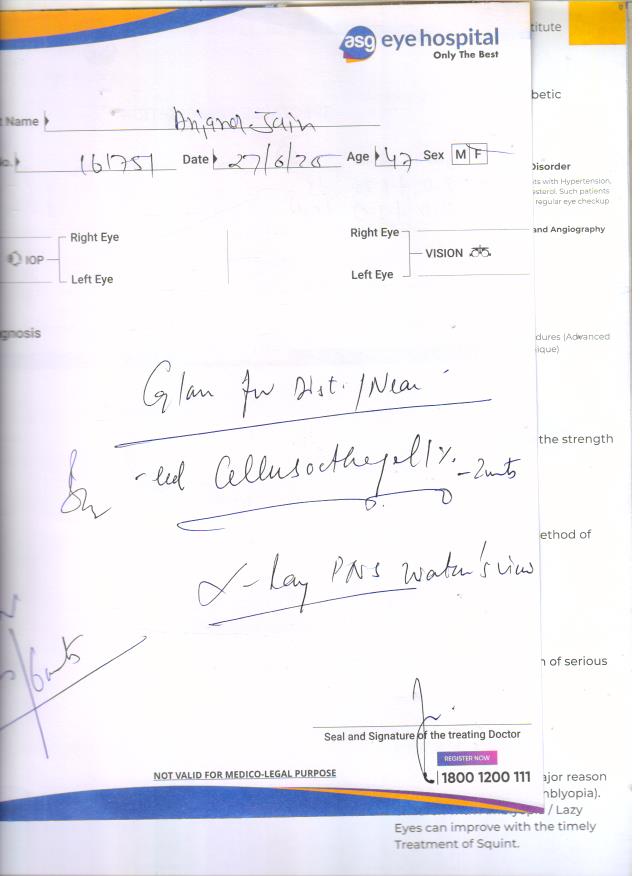 asg eye hospital
Only The Best
titute
betic
Name
Anjana Jain
No. 161751 Date 27/6/20 Age 47 Sex M F
Disorder
ts with Hypertension,
esterol. Such patients
regular eye checkup
and Angiography
IOP
Right Eye
Left Eye
Right Eye
Left Eye
VISION
gnosis
dures (Advanced
ique)
for Dist. / Near
the strength
1% - 2mts
ethod of
X-Ray PNS Water's view
/6mts
n of serious
Seal and Signature of the treating Doctor
REGISTER NOW
1800 1200 111
NOT VALID FOR MEDICO-LEGAL PURPOSE
ajor reason
nblyopia).
/ Lazy
Eyes can improve with the timely
Treatment of Squint.